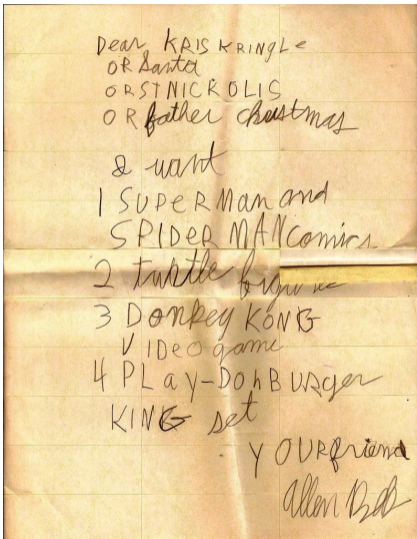 Dear KRIS KRINGLe
OR Santa
OR ST NICKOLIS
OR father chustmas
I want
1 SUPeR Man and
SPIDeR MAN comics
2 turtle
3 Donkey KONG
VIDeo game
4 PLay-DohBURger
KING set
YOURfriend
Allen